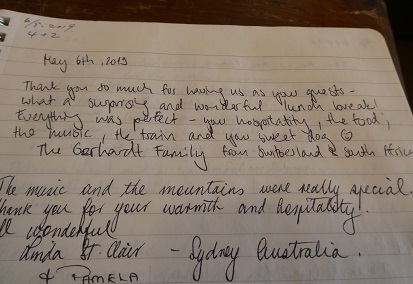 6/5-2019
4+2
May 6th, 2019
Thank you so much for having us as your guests -
what a surprising and wonderful lunch break!
Everything was perfect - your hospitality, the food,
the music, the train and your sweet dog ☺
The Gerhardt Family from Switzerland & South Africa
The music and the mountains were really special.
Thank you for your warmth and hospitality.
All wonderful
Linda St. Clair - Sydney Australia.
& PAMELA